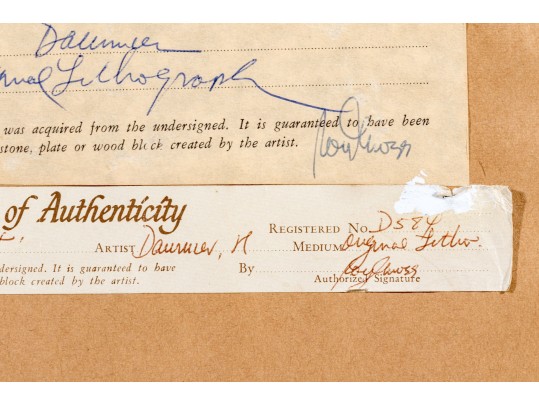 Daumier
Lithograph
was acquired from the undersigned. It is guaranteed to have been
stone, plate or wood block created by the artist.
of Authenticity
REGISTERED No. D584
ARTIST Daumier, H MEDIUM Original Lithor.
dersigned. It is guaranteed to have By
block created by the artist. Authorized Signature